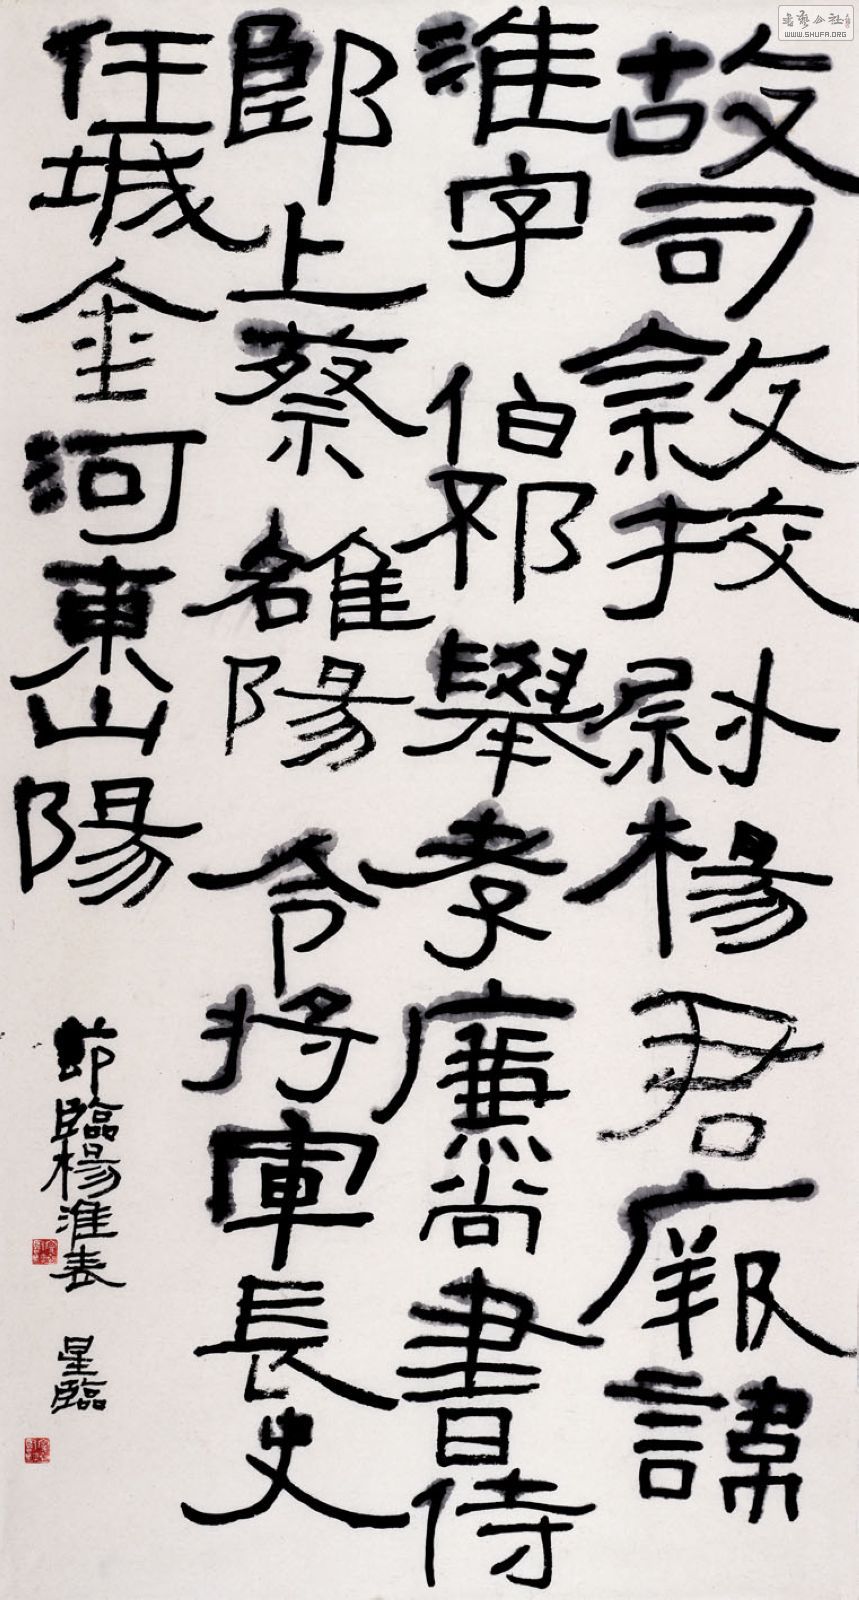 故司隸校尉楊君厥諱
淮字伯邳舉孝廉尚書侍
郎上蔡雒陽令將軍長史
任城金河東山陽
節臨楊淮表 星臨
書藝公社
WWW.SHUFA.ORG